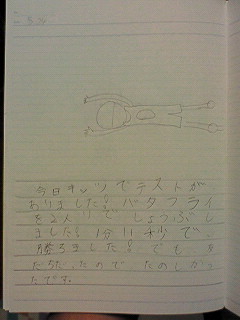 今日、でテストが
ありました!バタフライ
を2人でしょうぶし
ました!1分11秒で、
勝ちました!でも
だったのでたのしかっ
たです。